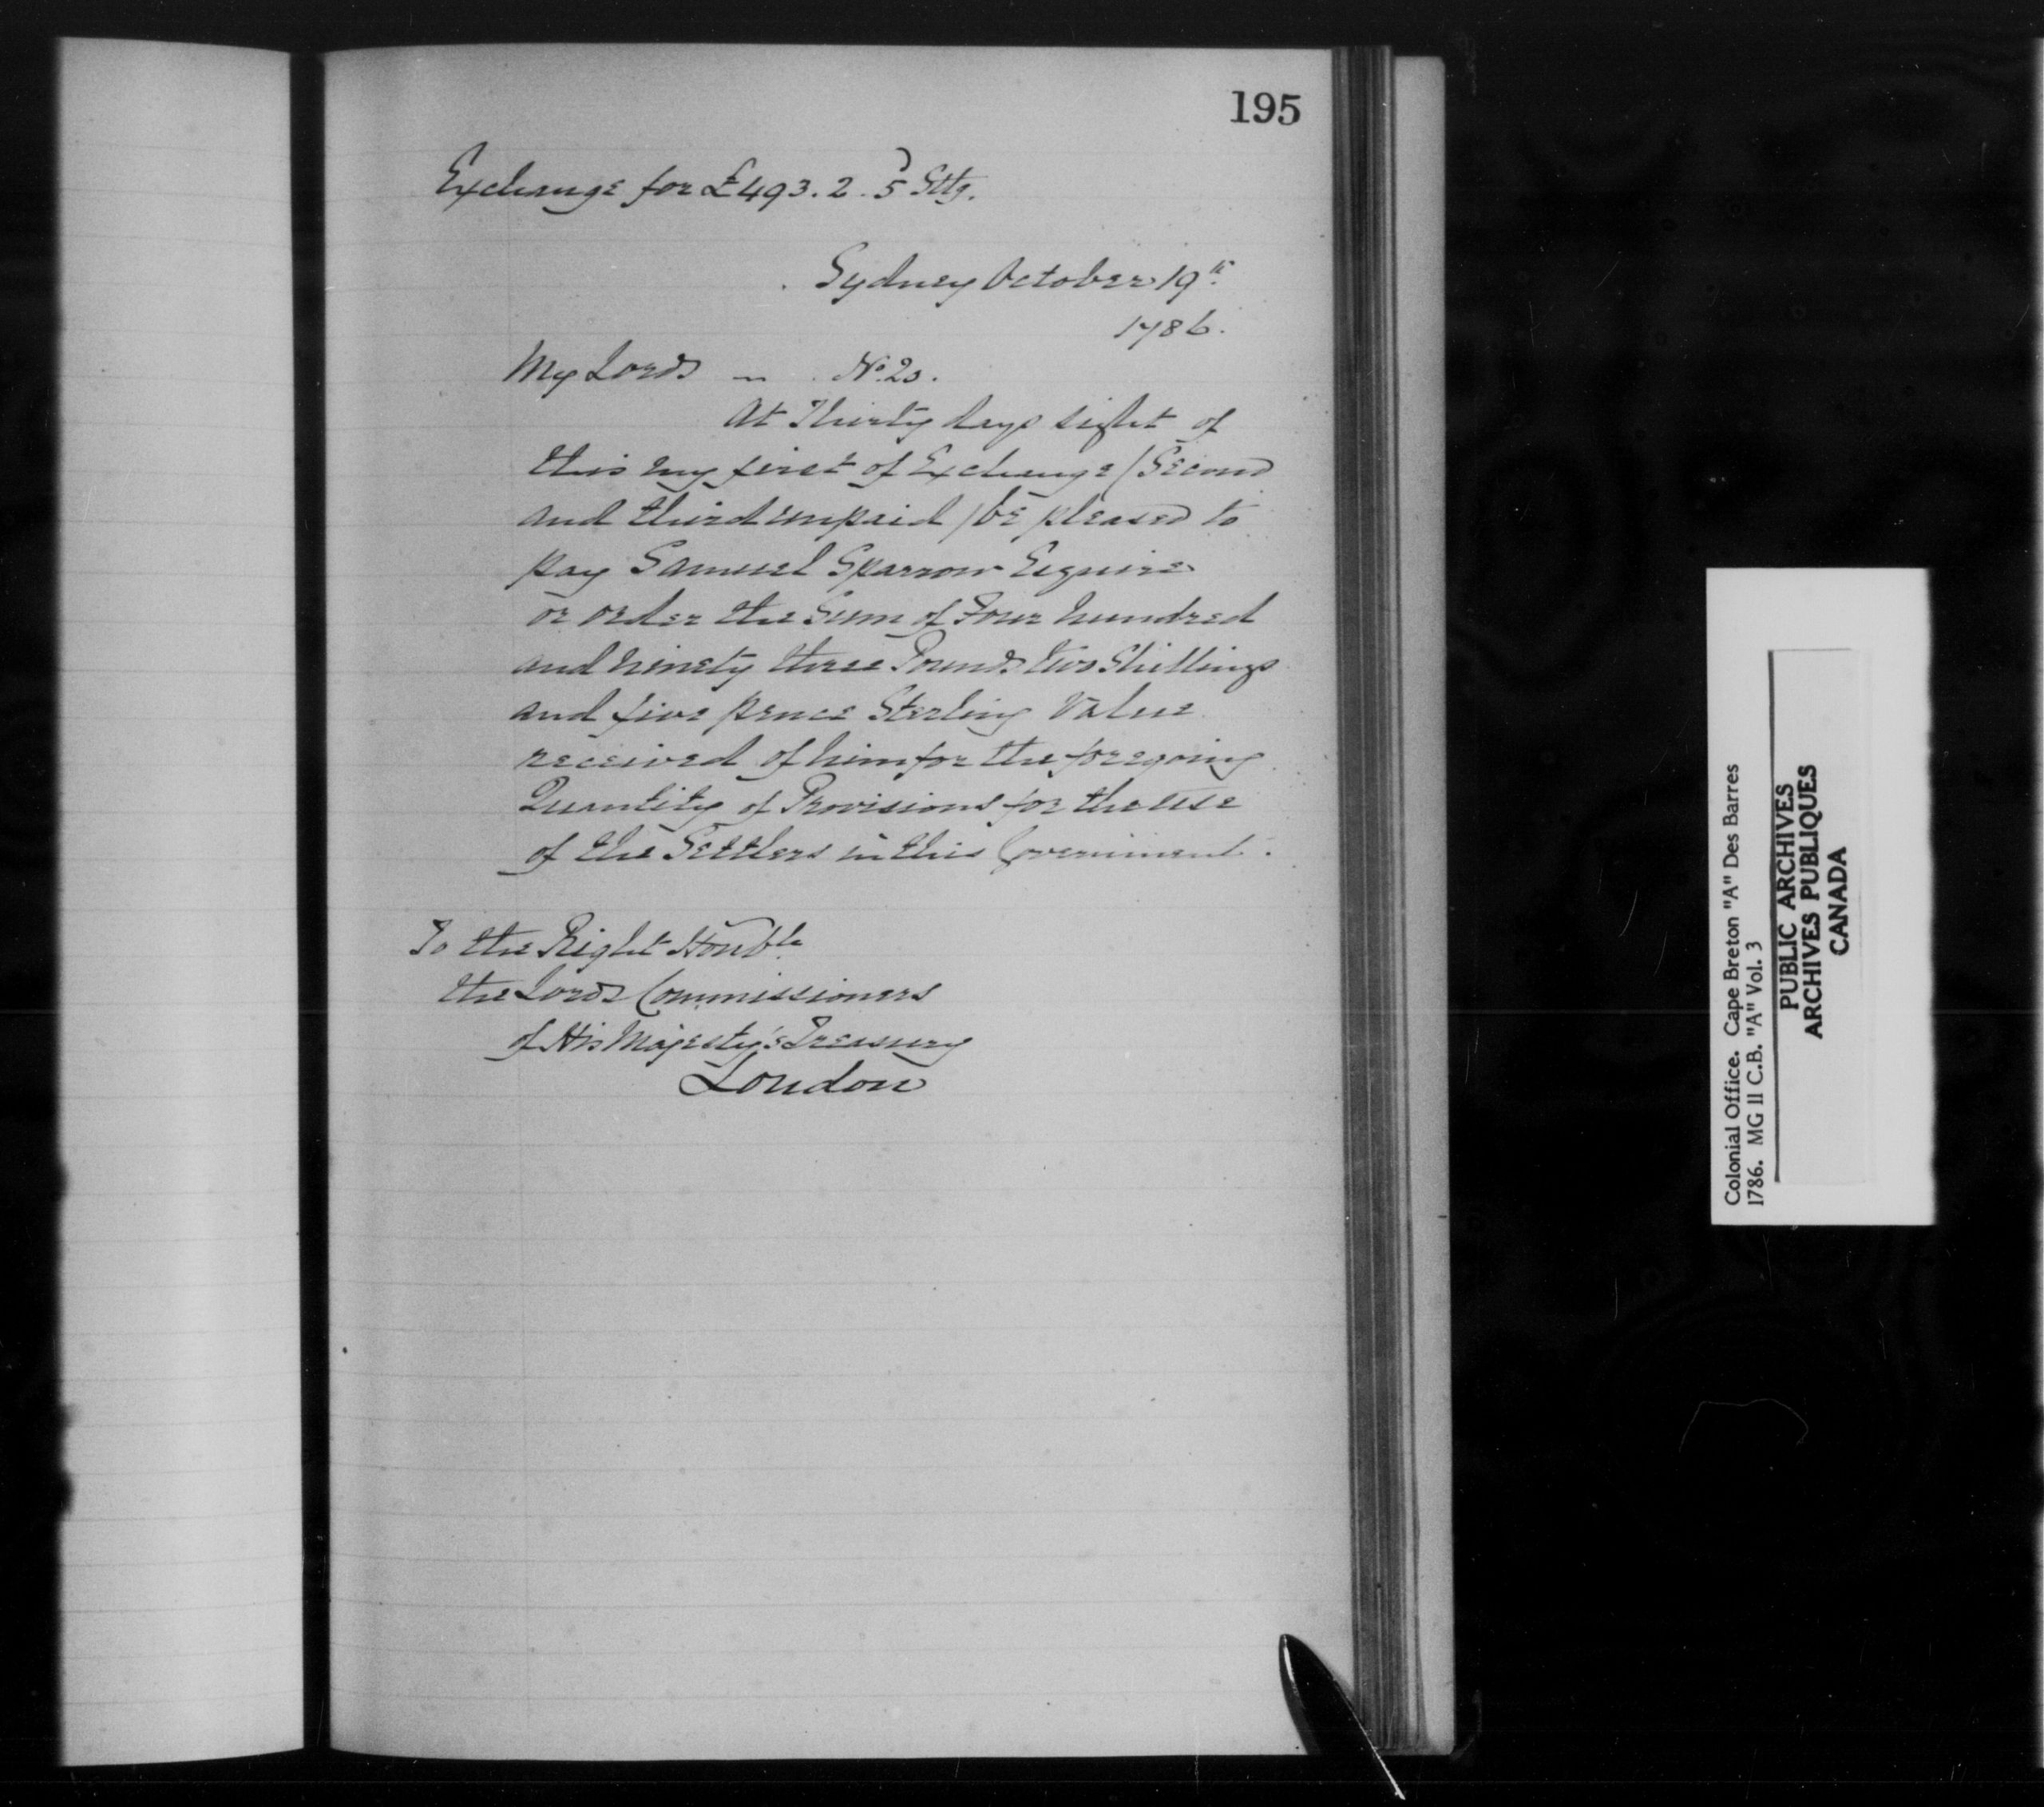 195
Exchange for £493.2.5 Sttg.
Sydney October 19th
1786.
My Lords — No. 20.
At Thirty days sight of
this my first of Exchange / Second
and third unpaid / be pleased to
pay Samuel Sparrow Esquire
or order the Sum of Four hundred
and ninety three Pounds two Shillings
and five pence Sterling Value
received of him for the foregoing
Quantity of Provisions for the use
of the Settlers in this Government.
To the Right Honble
the Lords Commissioners
of His Majesty's Treasury
London
Colonial Office. Cape Breton "A" Des Barres
1786. MG 11 C.B. "A" Vol. 3
PUBLIC ARCHIVES
ARCHIVES PUBLIQUES
CANADA